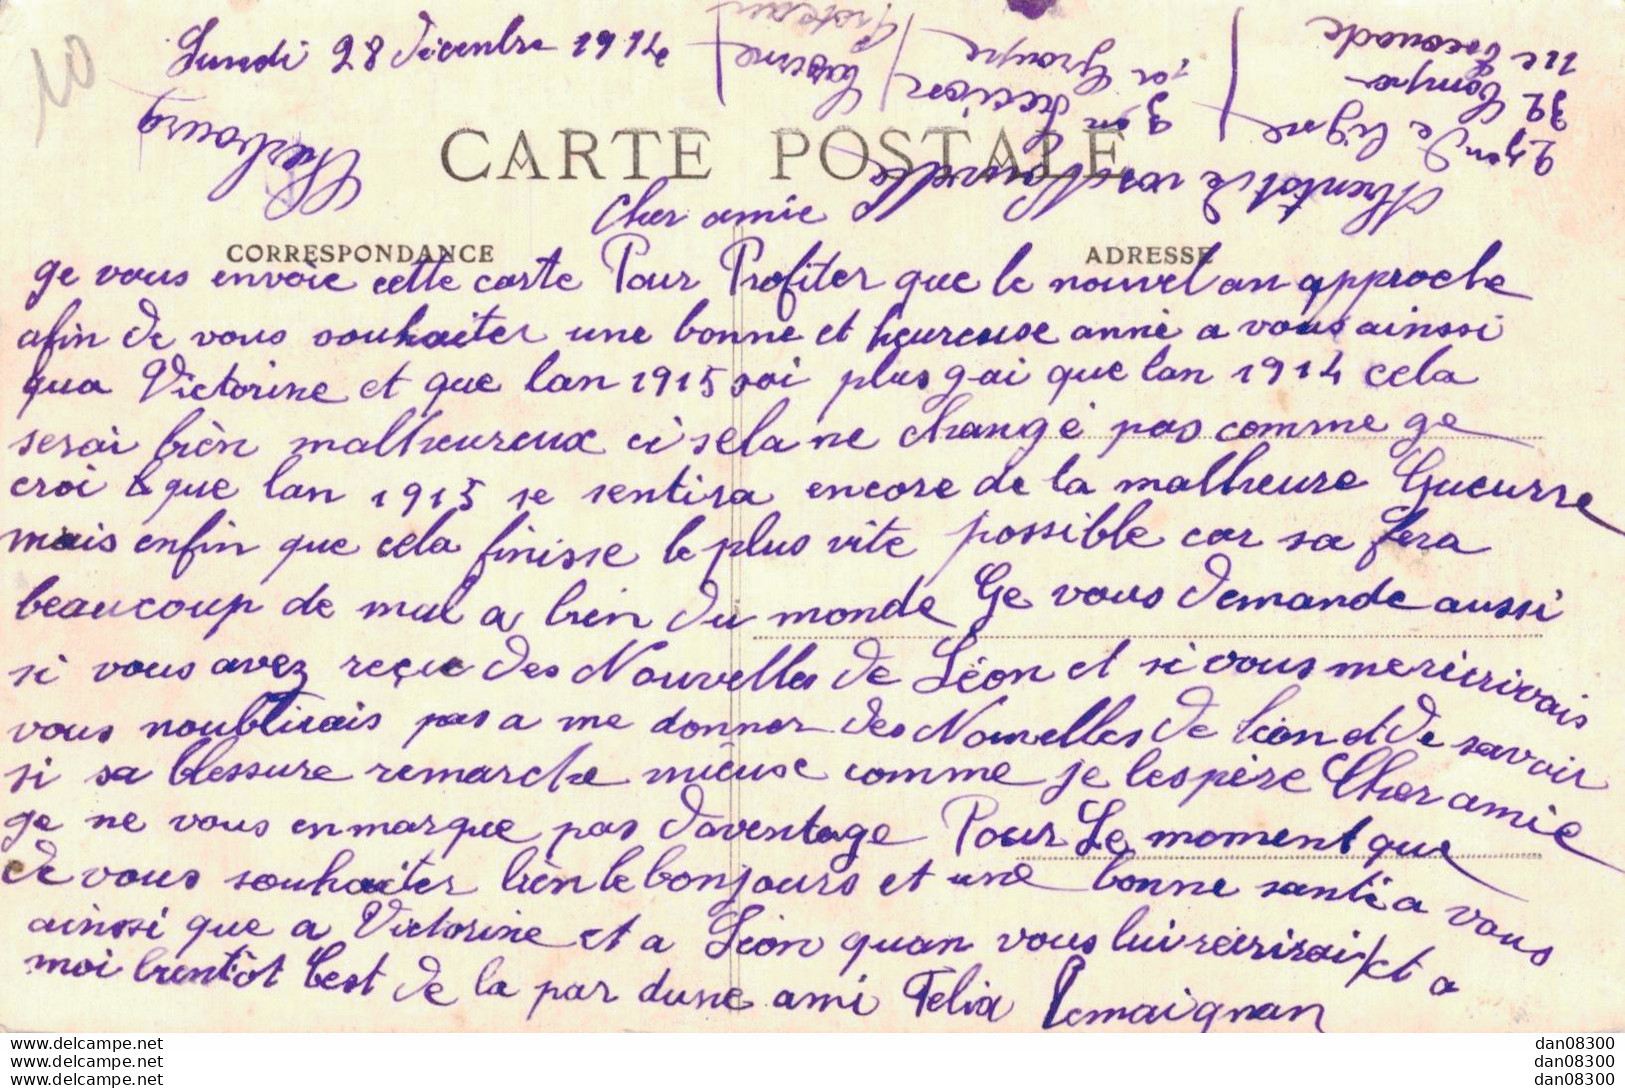 10
Lundi 28 décembre 1914
Cherbourg
CARTE POSTALE
Cher amie
CORRESPONDANCE
ADRESSE
ge vous envoie cette carte Pour Profiter que le nouvel an approche
afin de vous souhaiter une bonne et heureuse anné a vous ainssi
qua Victorine et que lan 1915 soi plus gai que lan 1914 cela
serai bièn malheureux ci sela ne change pas comme ge
croi que lan 1915 se sentira encore de la malheure Gueurre
mais enfin que cela finisse le plus vite possible car sa fera
beaucoup de mal a bien du monde Ge vous demande aussi
si vous avez reçue des Nouvelles de Léon et si vous me riécrivais
vous noublirais pas a me donner des Nouvelles de Léon et de savoir
si sa blessure remarche mieuse comme je lespère Cher amie
ge ne vous en marque pas daventage Pour Le moment que
de vous souhaiter bièn le bonjours et une bonne santé a vous
ainssi que a Victorine et a Léon quan vous lui réecrirai et a
moi bientôt Cest de la par dune ami Felix Lemaignan
Abientot de vos Nouvelle
2 5on de ligne
32 Compie
11e Escouade
3on section
1er Groupe
Caserne
Proteau
dan08300
dan08300
dan08300
www.delcampe.net
www.delcampe.net
www.delcampe.net